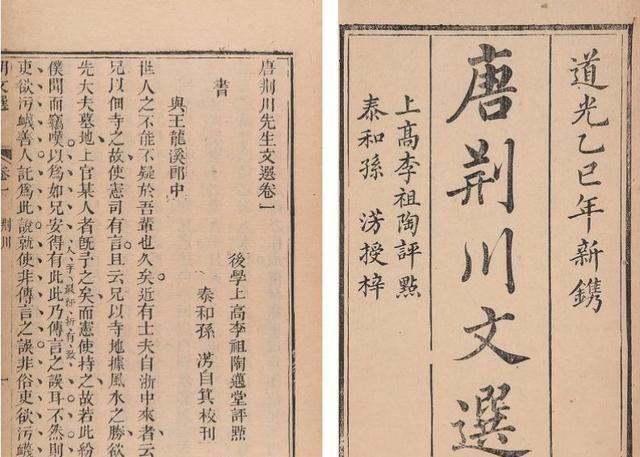 道光乙巳年新鐫
唐荆川文選
上高李祖陶評點
泰和孫 淓授梓
唐荆川先生文選卷一
後學上高李祖陶邁堂評點
泰和孫 淓自箕校刊
書
與王龍溪郎中
世人之不能不疑於吾輩也久矣近有士夫自浙中來者云
兄以佃寺之故使憲司有言且云兄以寺地據風水之勝欲
先大夫墓地上官某人者旣予之矣而憲使持之故若此紛
僕聞而竊嘆以爲如兄安得有此此乃傳言之誤耳不然則
吏欲污衊善人託爲此說就使非傳言之誤非俗吏欲污衊
文選 卷一 荆川 一